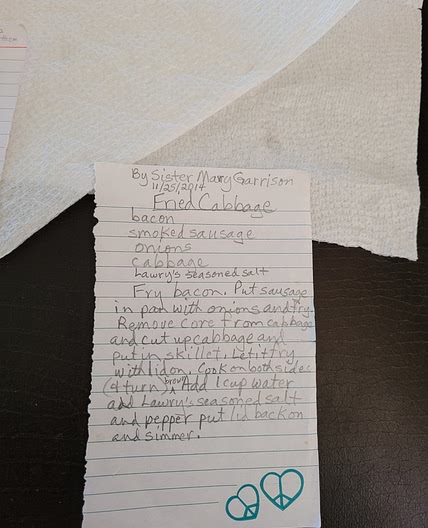 By Sister Mary Garrison
11/25/2014
Fried Cabbage
bacon
smoked sausage
onions
cabbage
Lawry's seasoned salt
Fry bacon. Put sausage
in pan with onions and fry.
Remove core from cabbage
and cut up cabbage and
put in skillet. Let it fry
with lid on. Cook on both sides
(& turn) brown Add 1 cup water
add Lawry's seasoned salt
and pepper put lid back on
and simmer.